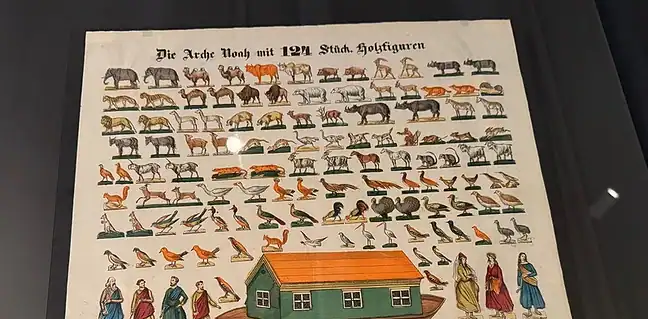 Die Arche Noah mit 124 Stück. Holzfiguren